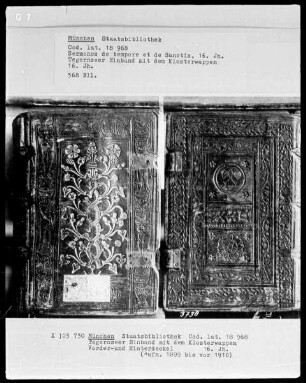 München Staatsbibliothek
Cod. lat. 18 968
Sermones de tempore et de Sanctis, 16. Jh.
Tegernseer Einband mit dem Klosterwappen
16. Jh.
568 Bll.
3738
X 103 750 München Staatsbibliothek Cod. lat. 18 968
Tegernseer Einband mit dem Klosterwappen
Vorder-und Hinterdeckel 16. Jh.
(Aufn. 1899 bis vor 1910)